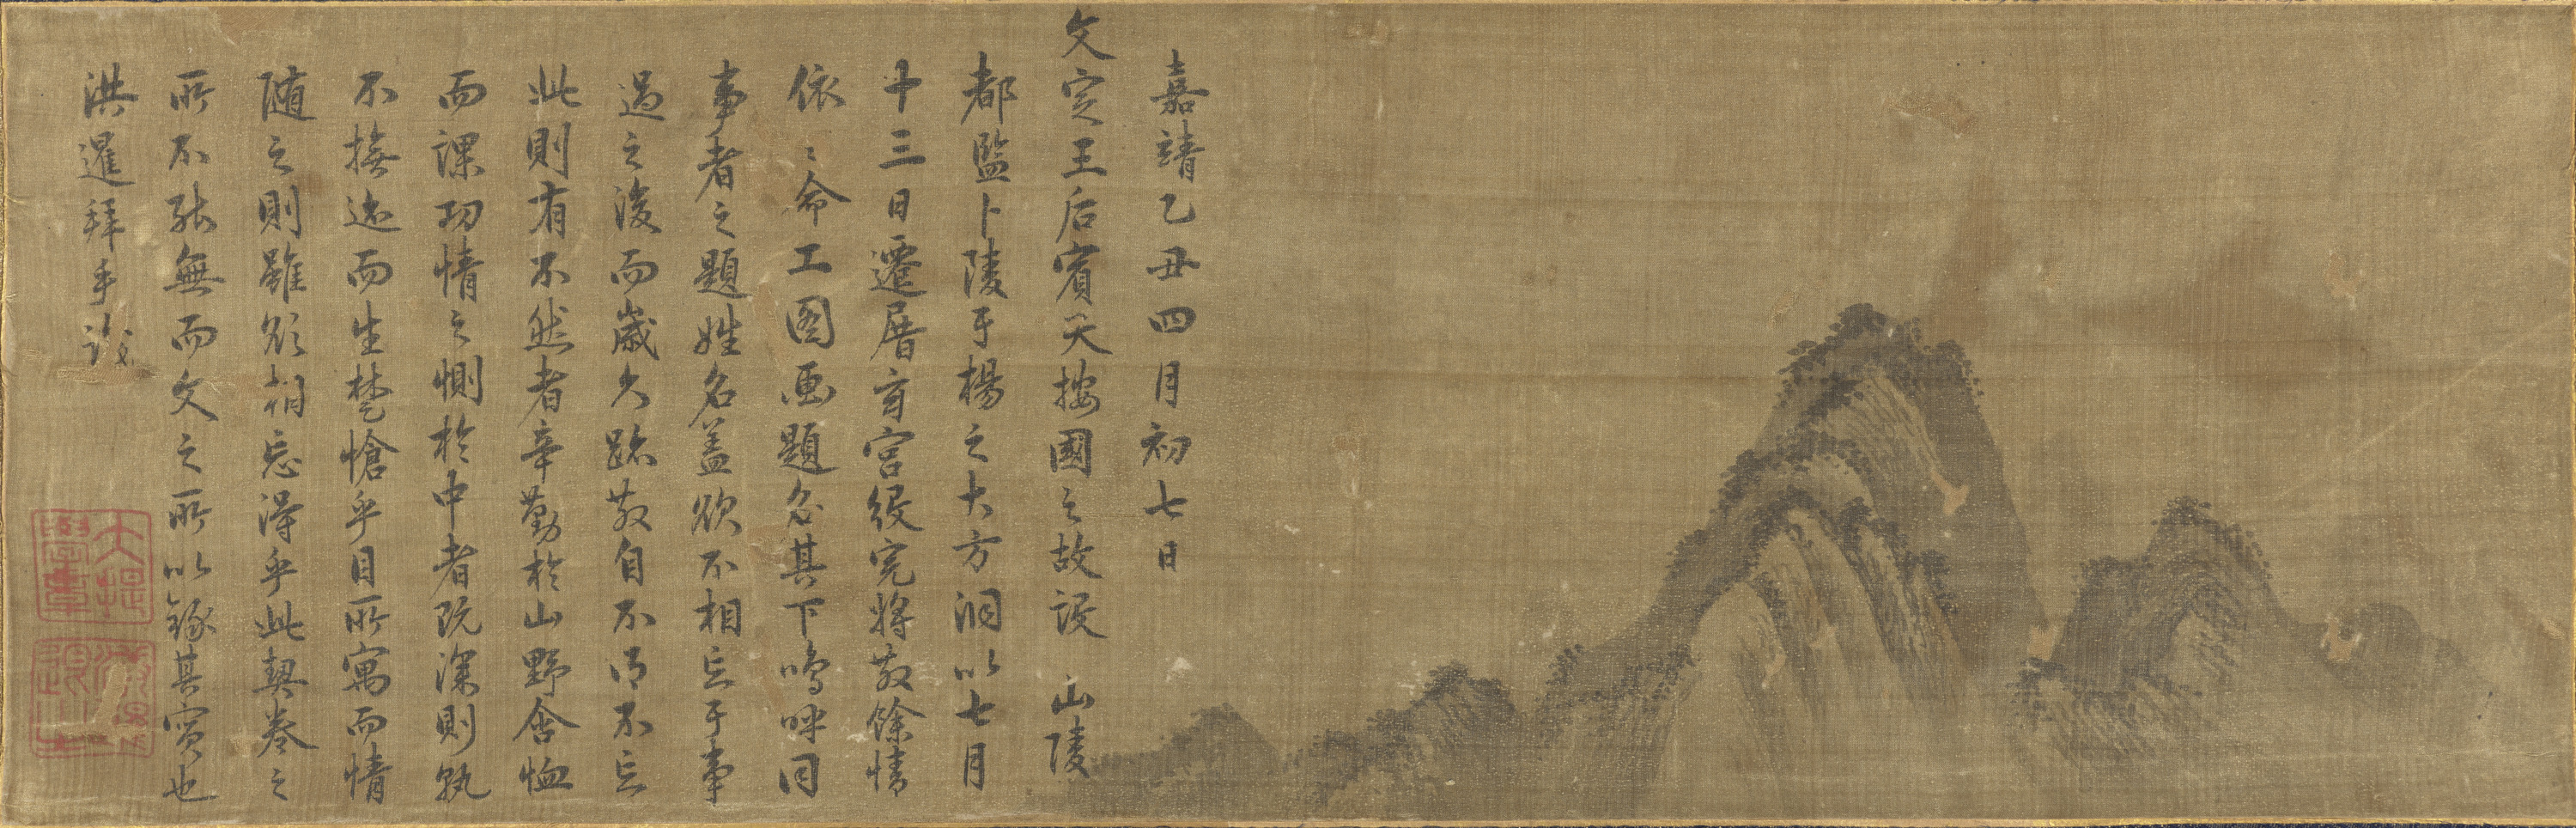 嘉靖乙丑四月初七日
文定王后賓天按國之故設 山陵
都監卜陵于楊之大方洞以七月
十三日遷厝 宮役完將散餘情
依〻命工図画題名其下嗚呼同
事者之題姓名盖欲不相忘于事
過之後而歲久跡散自不得不忘
此則有不然者辛勤於山野舍恤
而課功情之惻於中者既深則孰
不撫迹而生楚愴乎目所寓而情
随之則雖欲相忘得乎此契卷之
所不能無而文之所以錄其實也
洪暹拜手